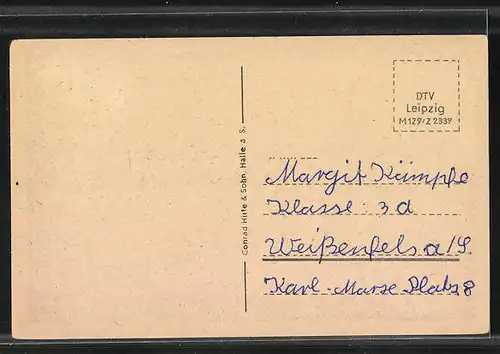 DTV
Leipzig
M129/Z 2339
Conrad Hirte & Sohn, Halle a. S.
Margit Kämpfe
Klasse: 3d
Weißenfels a/S.
Karl-Marx Platz 8